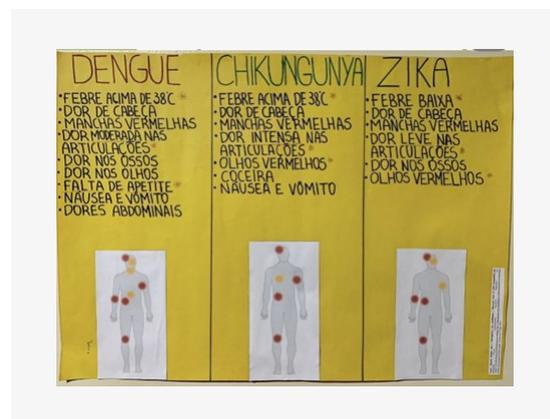 DENGUE
• FEBRE ACIMA DE 38°C *
• DOR DE CABEÇA
• MANCHAS VERMELHAS
• DOR MODERADA NAS
ARTICULAÇÕES *
• DOR NOS OSSOS
• DOR NOS OLHOS
• FALTA DE APETITE *
• NÁUSEA E VÔMITO
• DORES ABDOMINAIS
CHIKUNGUNYA
• FEBRE ACIMA DE 38°C *
• DOR DE CABEÇA
• MANCHAS VERMELHAS
• DOR INTENSA NAS
ARTICULAÇÕES *
• OLHOS VERMELHOS *
• COCEIRA
• NÁUSEA E VÔMITO
ZIKA
• FEBRE BAIXA *
• DOR DE CABEÇA
• MANCHAS VERMELHAS
• DOR LEVE NAS
ARTICULAÇÕES *
• DOR NOS OSSOS
• OLHOS VERMELHOS *